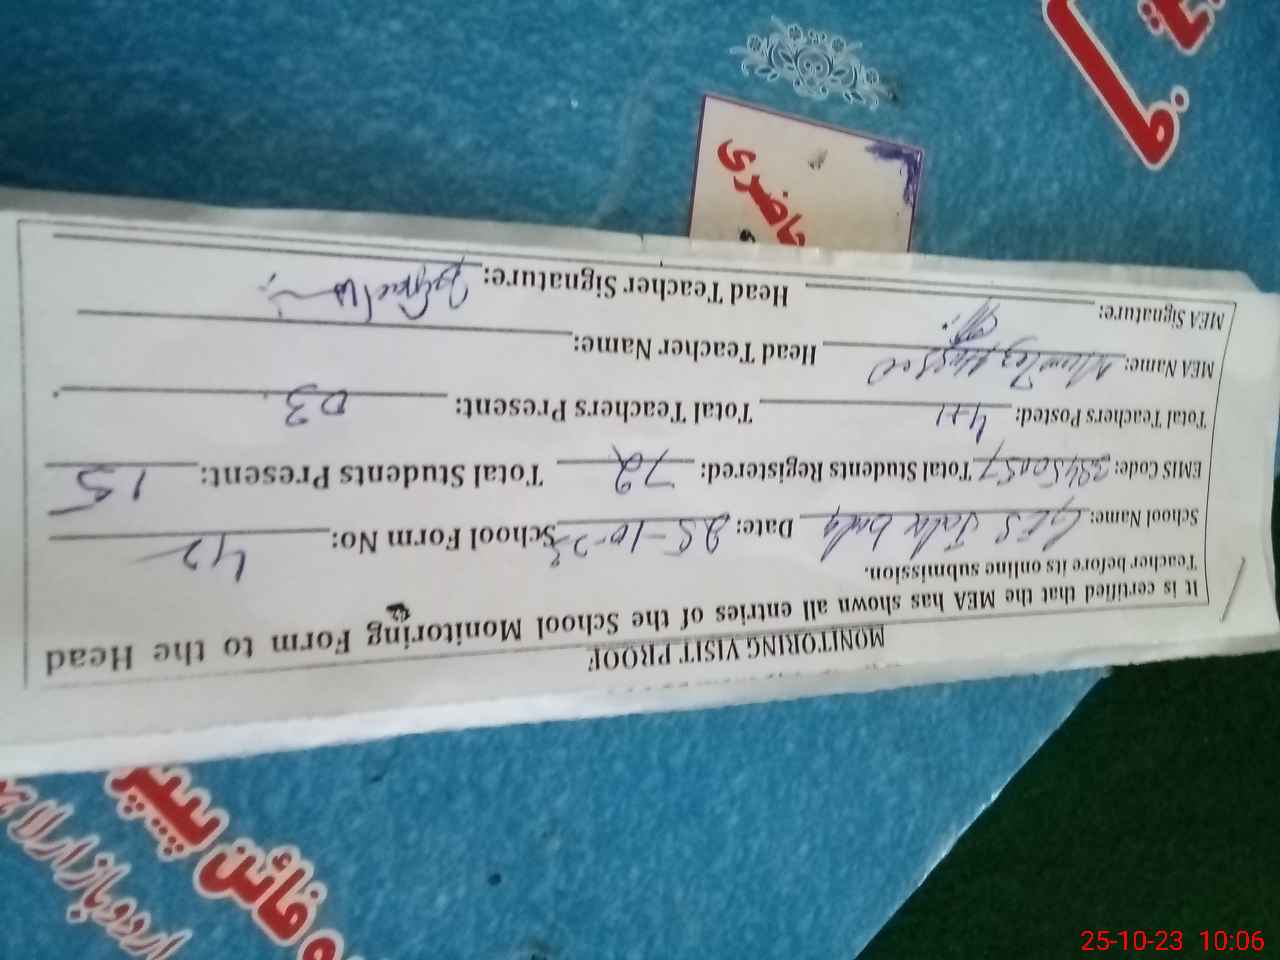 MONITORING VISIT PROOF
It is certified that the MEA has shown all entries of the School Monitoring Form to the Head
Teacher before its online submission.
School Name: GES Date: 25-10-23 School Form No: 42
EMIS Code: Total Students Registered: 72 Total Students Present: 15
Total Teachers Posted: 4+1 Total Teachers Present: 03
MEA Name: Head Teacher Name:
MEA Signature: Head Teacher Signature:
حاضری
فائن پیپر
اردو بازار لاہور
25-10-23 10:06